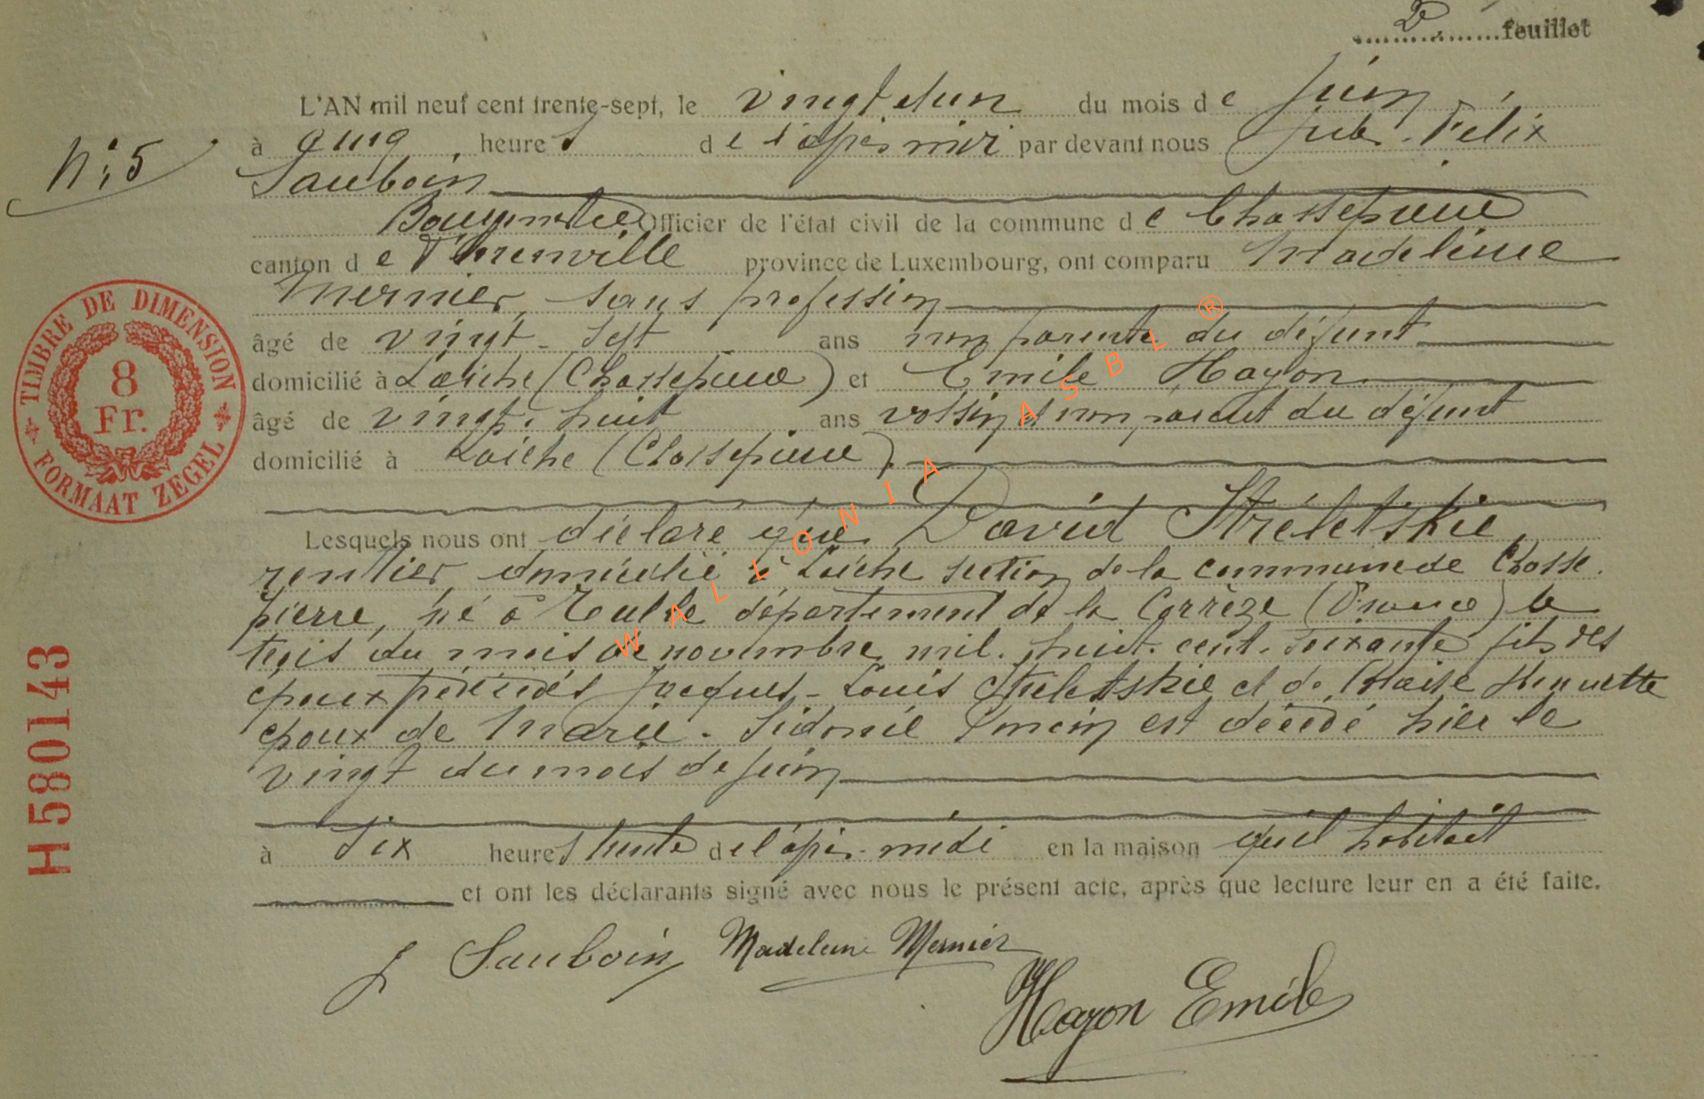 2e feuillet
L'AN mil neuf cent trente-sept, le vingt et un du mois de juin
N° 5
à cinq heures de l'après midi par devant nous Jules Félix
Sauboin
Bourgmestre Officier de l'état civil de la commune de Chassepierre
canton de Florenville province de Luxembourg, ont comparu Madeleine
Mernier, sans profession
âgé de vingt-sept ans non parente du défunt
domicilié à Laiche (Chassepierre) et Emile Hayon
âgé de vingt-huit ans voisin et non parent du défunt
domicilié à Laiche (Chassepierre)
Lesquels nous ont déclaré que David Stréletskie,
rentier, domicilié à Laiche section de la commune de Chasse-
pierre, né à Tulle département de la Corrèze (France) le
trois du mois de novembre mil-huit-cent-soixante fils des
époux Jacques-Louis Streletskie et de Blaise Henriette
époux de Marie-Sidonie est décédé hier le
vingt du mois de juin
à six heures trente de l'après-midi en la maison qu'il habitait
et ont les déclarants signé avec nous le présent acte, après que lecture leur en a été faite.
J Sauboin Madeleine Mernier
Hayon Emile
TIMBRE DE DIMENSION
8
Fr.
FORMAAT ZEGEL
H580143
WALLONIA ASBL ®